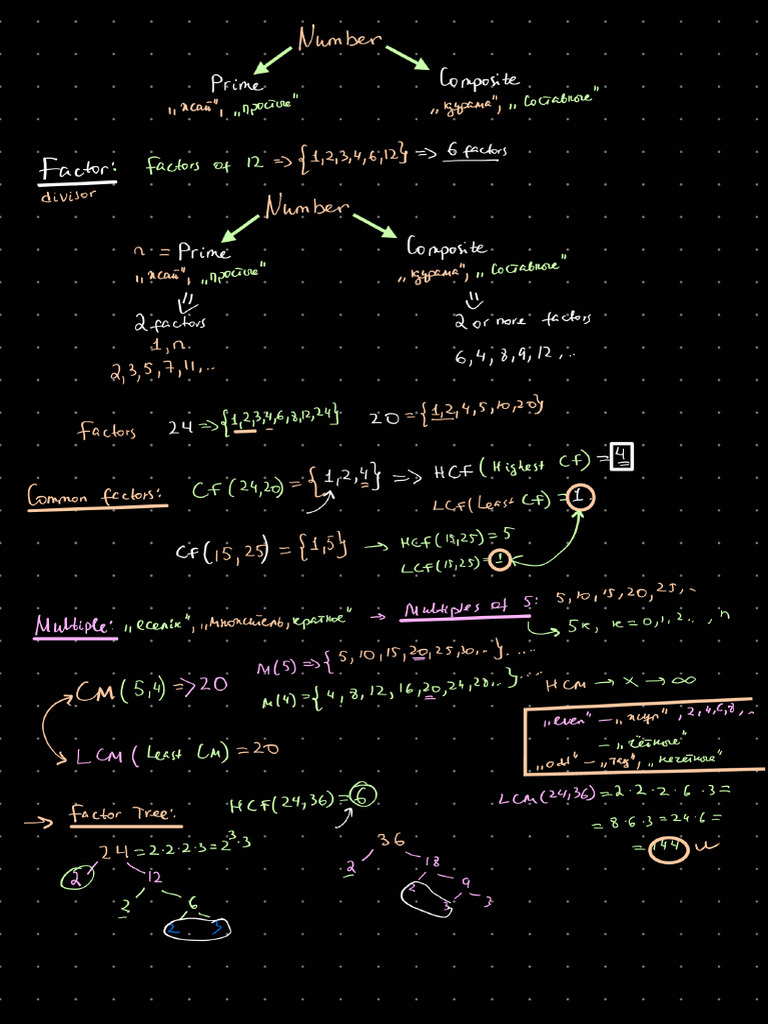 Number
Prime
Composite
„жай", „простые"
„құрама", „составные"
Factor: Factors of 12 => {1,2,3,4,6,12} => 6 factors
divisor
Number
n = Prime
Composite
„жай", „простые"
„құрама", „составные"
2 factors
2 or more factors
1, n
2,3,5,7,11,..
6,4,8,9,12,..
Factors 24 => {1,2,3,4,6,8,12,24} 20 = {1,2,4,5,10,20}
Common factors: CF(24,20) = {1,2,4} => HCF(Highest CF) = 4
LCF(Least CF) = 1.
CF(15,25) = {1,5} → HCF(15,25) = 5
LCF(15,25) = 1
Multiple: „еселік", „множитель, кратное" → Multiples of 5: 5,10,15,20,25,..
5k, k=0,1,2..., n
M(5) => {5,10,15,20,25,30,..}.....
CM(5,4) => 20
M(4) = {4,8,12,16,20,24,28,..}.....
HCM → x → ∞
„even" – „жұп", 2,4,6,8,..
– „чётные"
„odd" – „тақ", „нечётные"
LCM(Least CM) = 20
HCF(24,36) = 6
→ Factor Tree:
LCM(24,36) = 2·2·2·6·3 =
= 8·6·3 = 24·6 =
= 144
24 = 2·2·2·3 = 2³·3
2 12
2 6
2 3
36
2 18
2 9
3 3